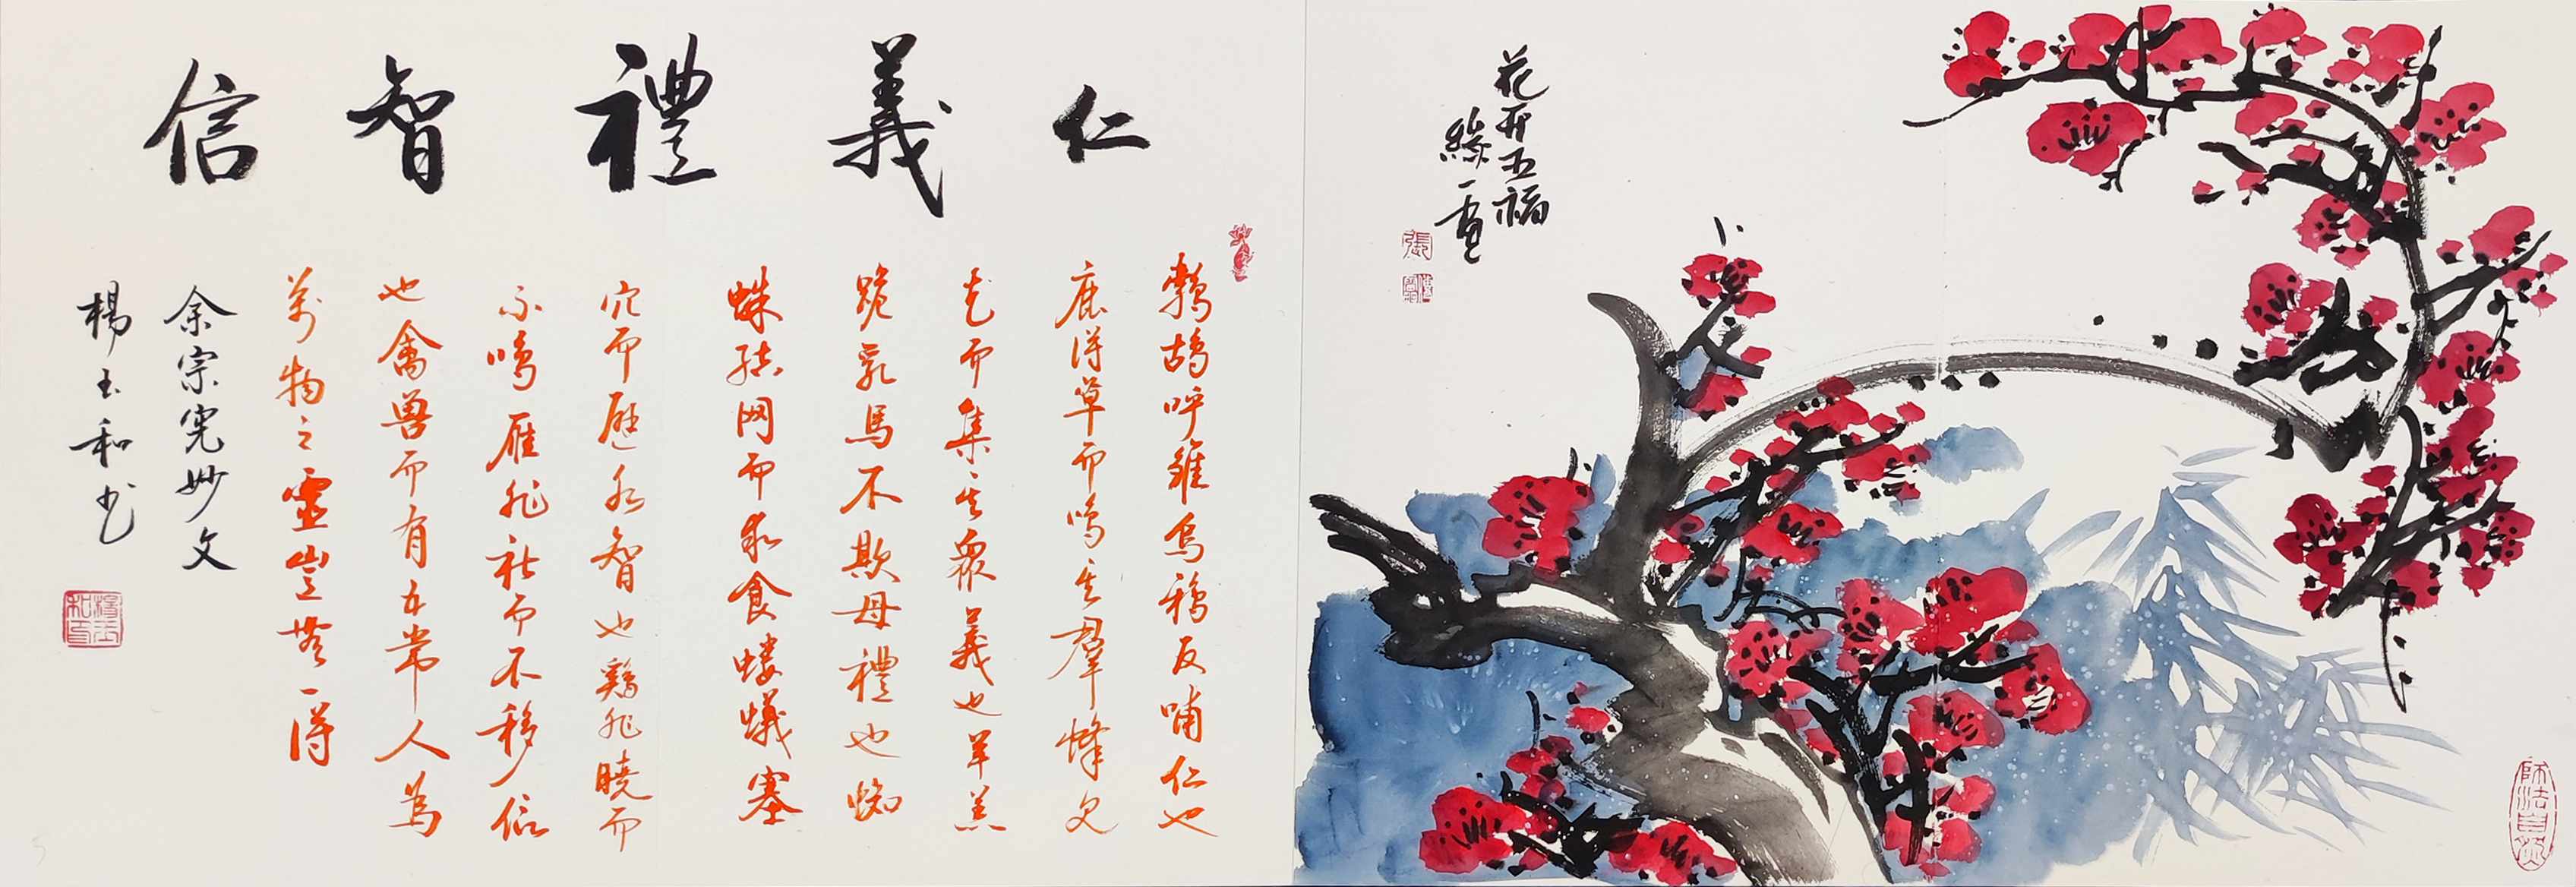 花开五福
緣一畫
張
師法自然
仁義禮智信
鵓鴣呼雛烏鴉反哺仁也
鹿得草而鳴其羣蜂見
花而集其眾義也羊羔
跪乳馬不欺母禮也蜘
蛛結网而求食螻蟻塞
穴而避水智也鷄非曉而
不鳴雁非社而不移信
也禽兽而有五常人為
萬物之靈豈無一得
余宗宪妙文
楊玉和书
楊玉和印